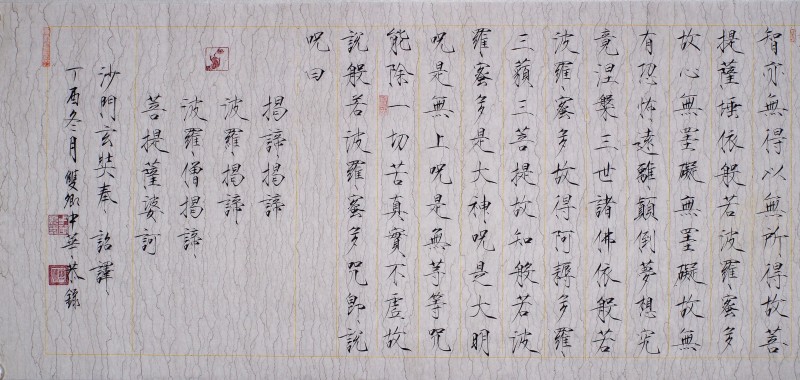 智亦無得以無所得故菩
提薩埵依般若波羅蜜多
故心無罣礙無罣礙故無
有恐怖遠離顛倒夢想究
竟涅槃三世諸佛依般若
波羅蜜多故得阿耨多羅
三藐三菩提故知般若波
羅蜜多是大神呪是大明
呪是無上呪是無等等呪
能除一切苦真實不虛故
說般若波羅蜜多呪即說
呪曰
揭諦揭諦
波羅揭諦
波羅僧揭諦
菩提薩婆訶
沙門玄奘奉詔譯
丁酉冬月雙鄉中英恭錄